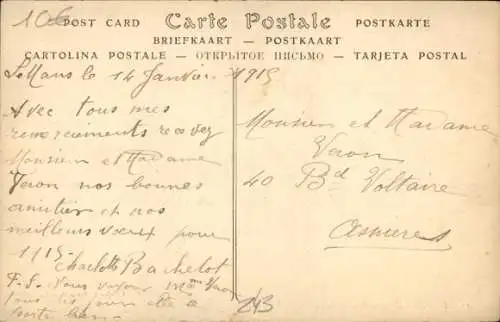 106
POST CARD Carte Postale POSTKARTE
BRIEFKAART — POSTKAART
CARTOLINA POSTALE — ОТКРЫТОЕ ПИСЬМО — TARJETA POSTAL
Le Mans le 14 Janvier 1915
Avec tous mes
remerciements recevez
Monsieur et Madame
Veron nos bonnes
amitiés et nos
meilleurs vœux pour
1915
Charlotte Bachelot
P.S. Nous voyons Mme Veron
tous les jours elle se
porte bien
Monsieur et Madame
Veron
40 Bd Voltaire
Asnieres
243